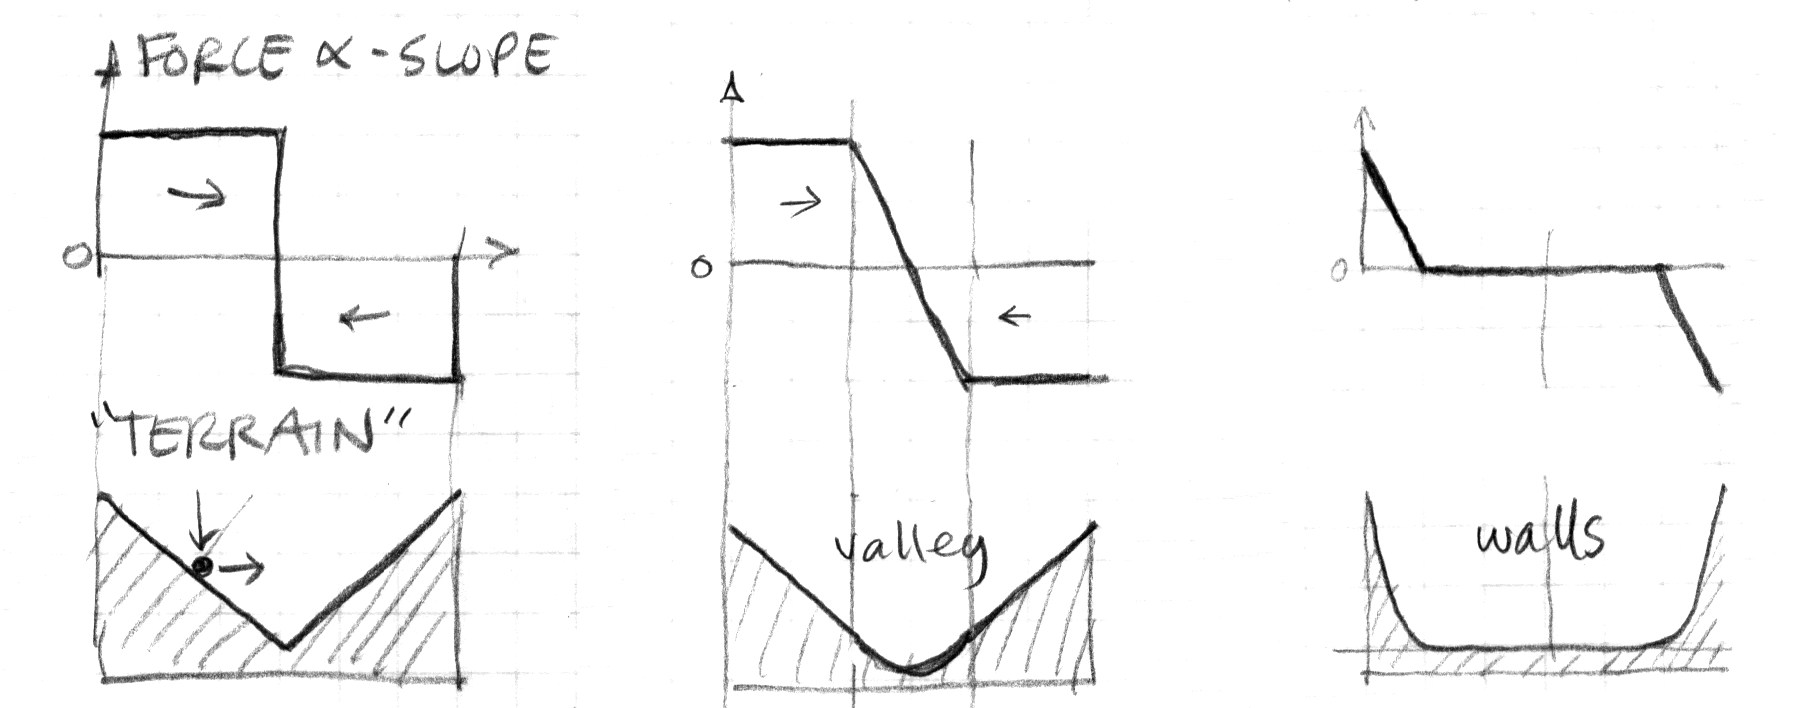 FORCE ∝ -SLOPE
0
"TERRAIN"
0
valley
0
walls